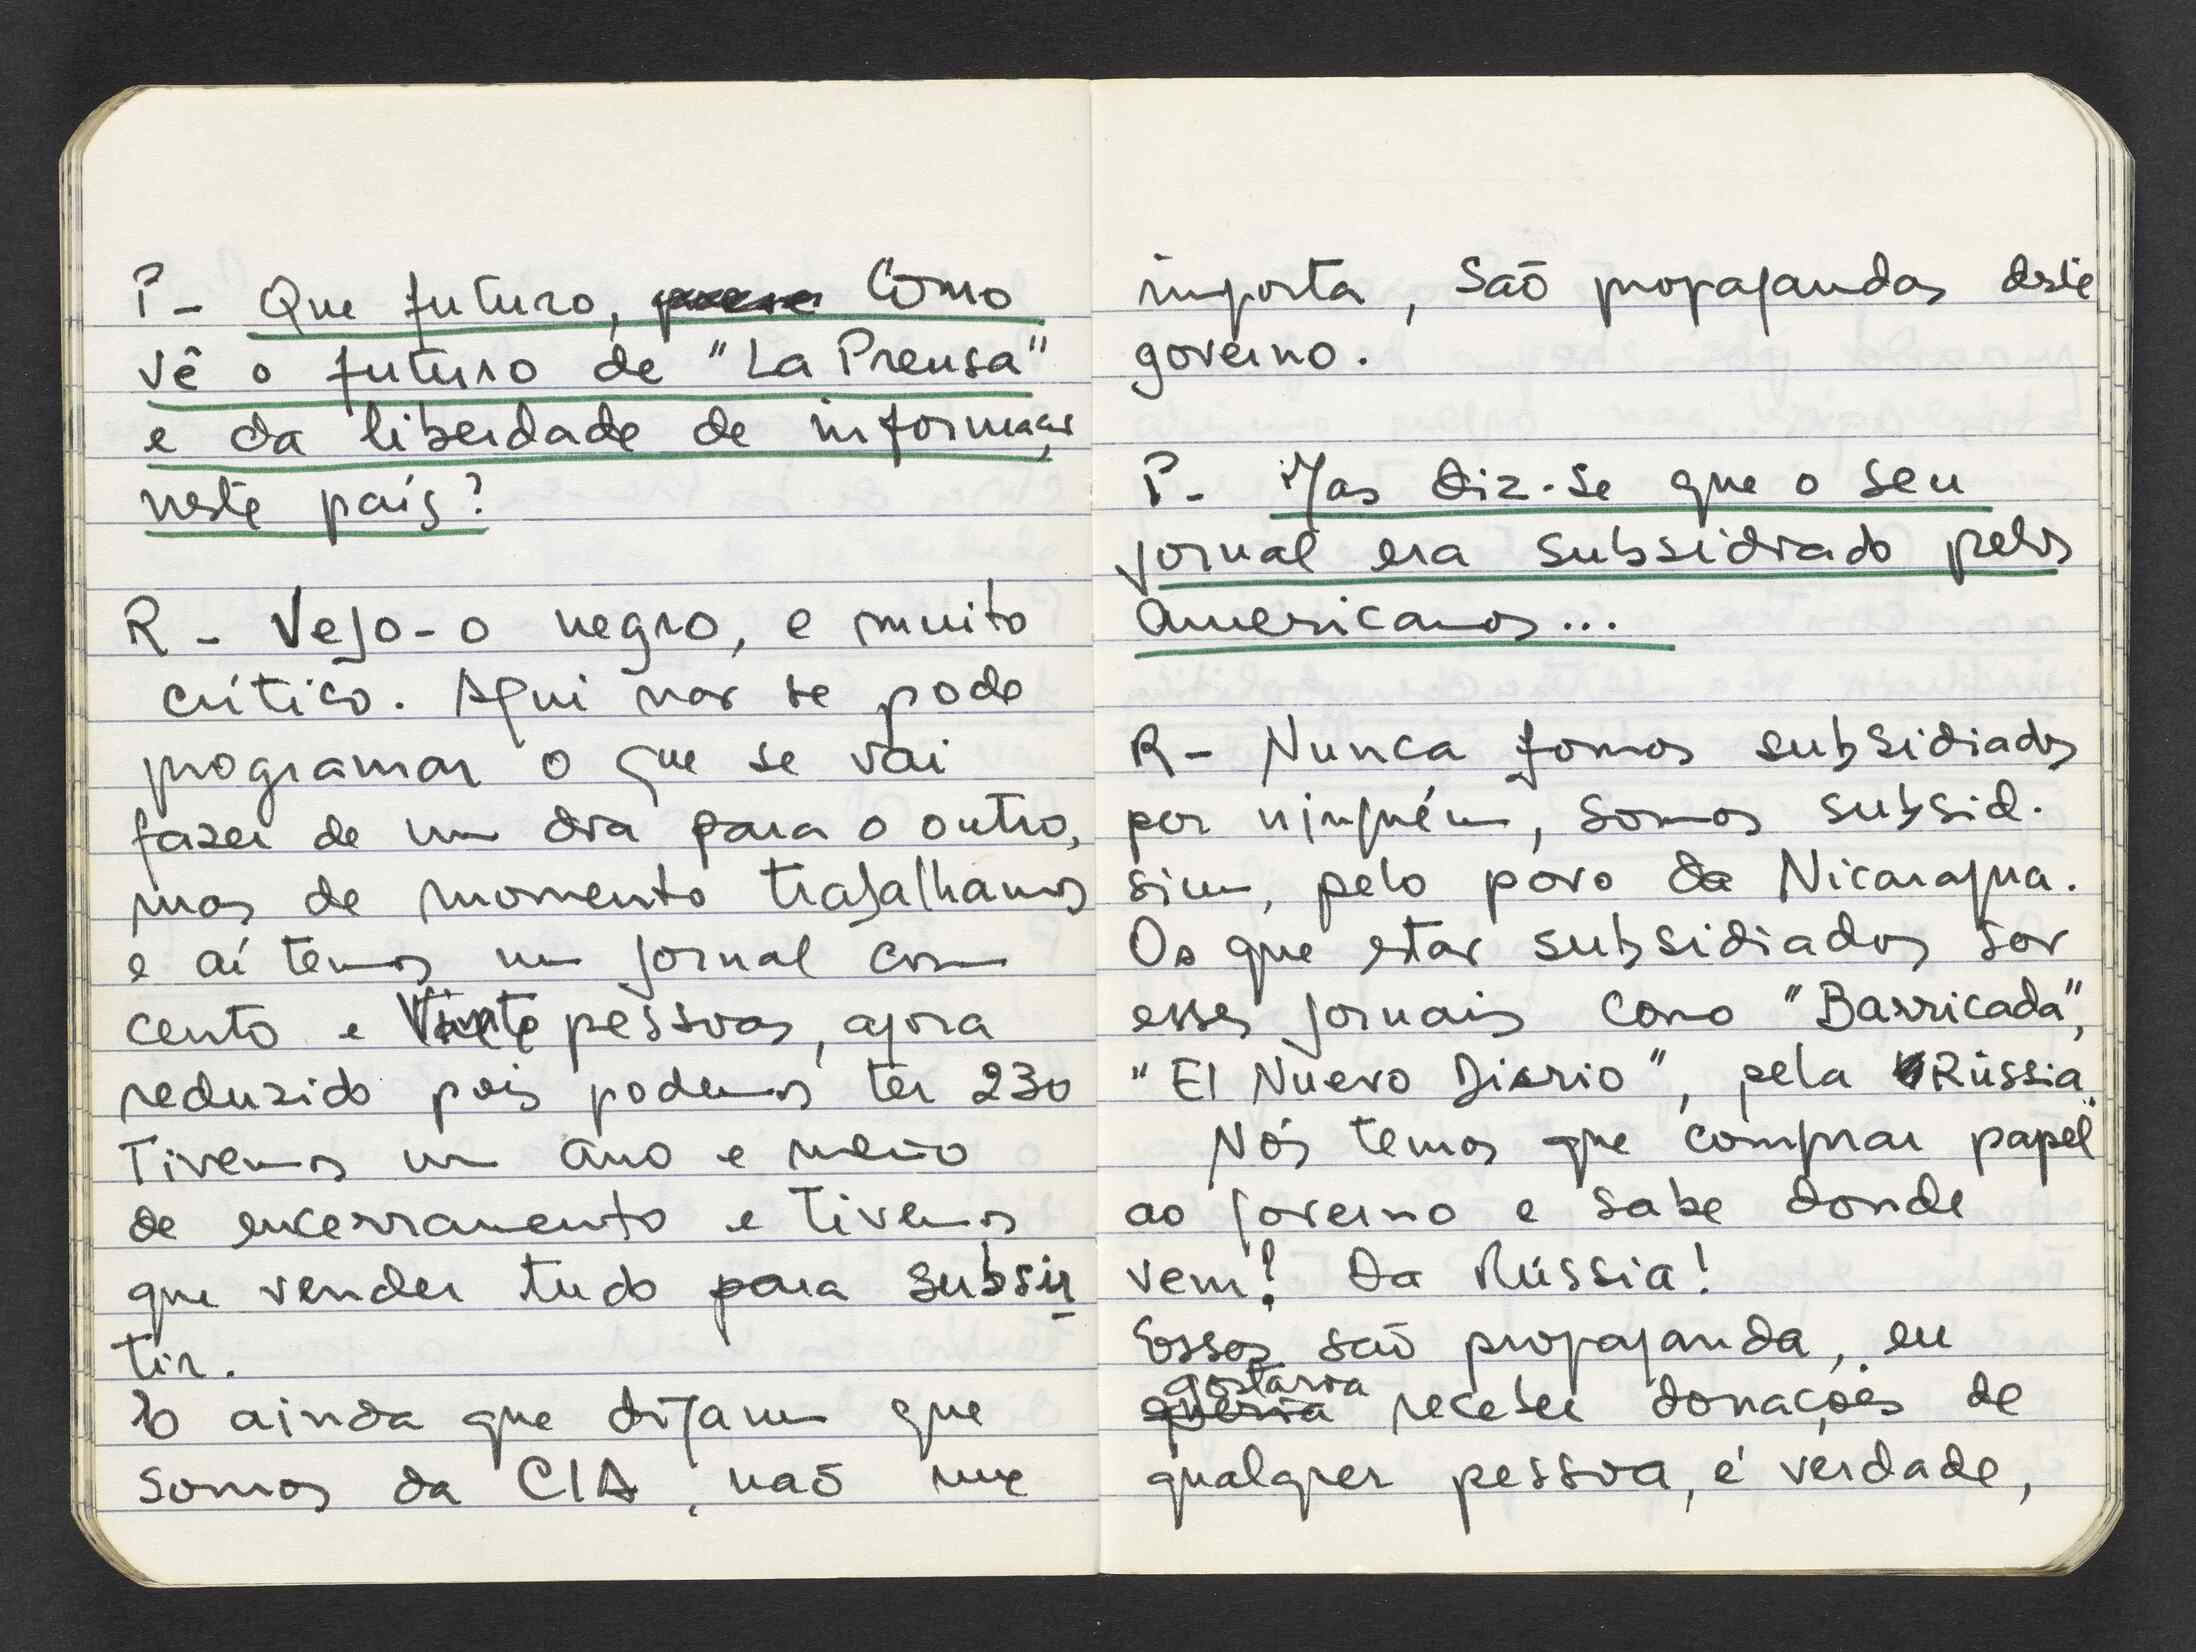 P - Que futuro, Como
vê o futuro de "La Prensa"
e da liberdade de informação
neste país?
R - Vejo-o negro, e muito
crítico. Aqui não se pode
programar o que se vai
fazer de um dia para o outro,
mas de momento trabalhamos
e aí temos um jornal com
cento e vinte pessoas, agora
reduzido pois podemos ter 230
Tivemos um ano e meio
de encerramento e tivemos
que vender tudo para subsis
tir.
E ainda que digam que
somos da CIA, não me
importa, São propagandas deste
governo.
P - Mas diz-se que o seu
jornal era subsidiado pelos
americanos...
R - Nunca fomos subsidiados
por ninguém, somos subsid.
sim, pelo povo da Nicaragua.
Os que estão subsidiados são
esses jornais como "Barricada",
"El Nuevo Diario", pela Rússia.
Nós temos que comprar papel
ao governo e sabe donde
vem? Da Rússia!
Essas são propaganda, eu
gostaria
queria receber donações de
qualquer pessoa, é verdade,